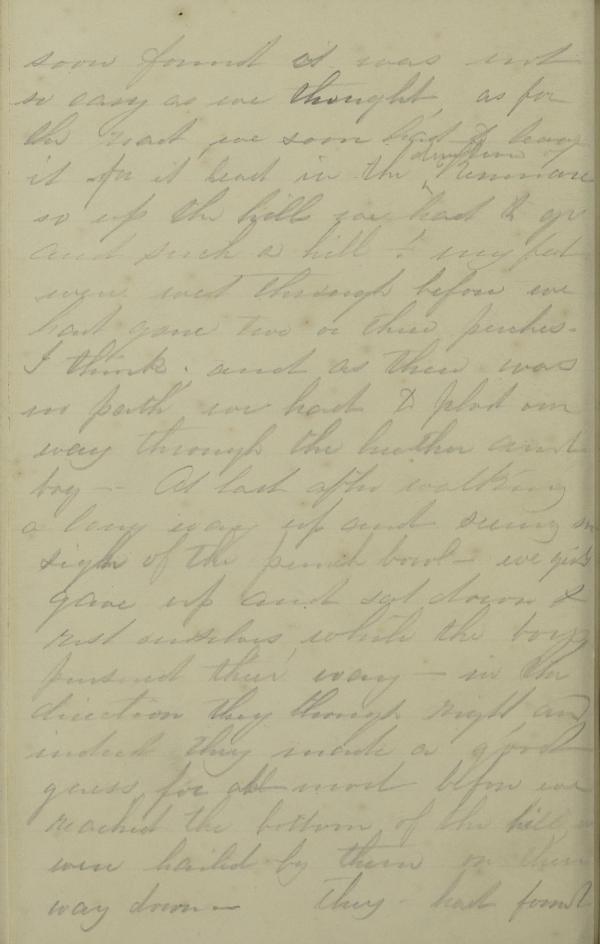 soon found it was not
so easy as we thought, as for
the road we soon had to leave
it for it lead in the direction of Kenmare
so up the hill we had to go
and such a hill! my feet
were wet through before we
had gone two or three perches.
I think. and as there was
no path we had to plod our
way through the heather and
bog — At last after walking
a long way up and seeing no
sign of the punch bowl — we girls
gave up and sat down to
rest ourselves while the boys
pursued their way — in the
direction they though right and
indeed they made a good
guess, for almost before we
reached the bottom of the hill, we
were hailed by them on their
way down — They had found